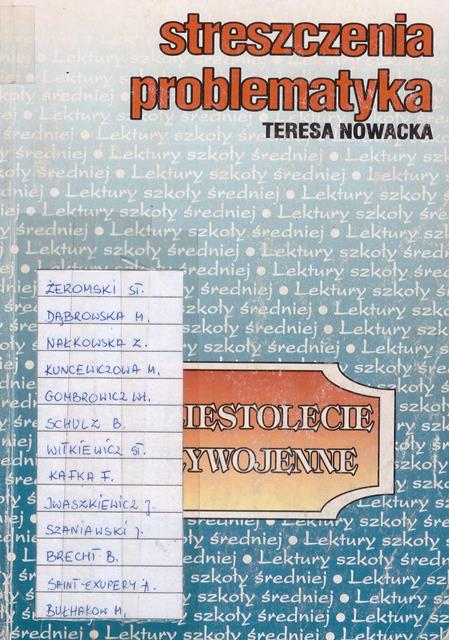 streszczenia
problematyka
TERESA NOWACKA
Lektury szkoły średniej • Lektury szkoły
średniej • Lektury szkoły średniej
ŻEROMSKI ST.
DĄBROWSKA M.
NAŁKOWSKA Z.
KUNCEWICZOWA M.
GOMBROWICZ WŁ.
SCHULZ B.
WITKIEWICZ ST.
KAFKA F.
JWASZKIEWICZ J.
SZANIAWSKI J.
BRECHT B.
SAINT-EXUPERY A.
BUŁHAKOW M.
IESTOLECIE
ZYWOJENNE